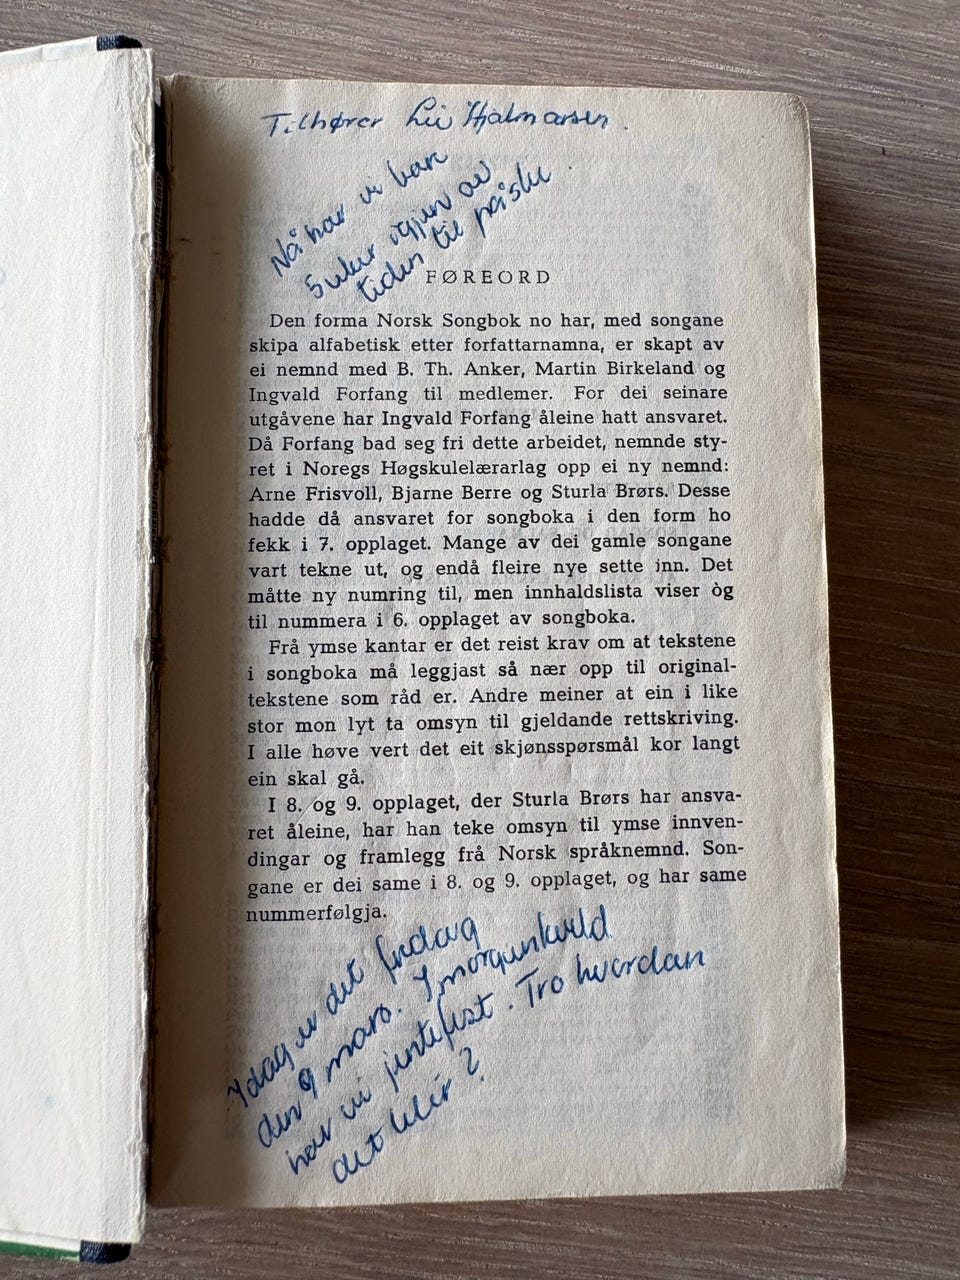 Tilhører Liv Hjalmarsen.
Nå har vi bare
5 uker igjen av
tiden til påske
FØREORD
Den forma Norsk Songbok no har, med songane
skipa alfabetisk etter forfattarnamna, er skapt av
ei nemnd med B. Th. Anker, Martin Birkeland og
Ingvald Forfang til medlemer. For dei seinare
utgåvene har Ingvald Forfang åleine hatt ansvaret.
Då Forfang bad seg fri dette arbeidet, nemnde sty-
ret i Noregs Høgskulelærarlag opp ei ny nemnd:
Arne Frisvoll, Bjarne Berre og Sturla Brørs. Desse
hadde då ansvaret for songboka i den form ho
fekk i 7. opplaget. Mange av dei gamle songane
vart tekne ut, og endå fleire nye sette inn. Det
måtte ny numring til, men innhaldslista viser òg
til nummera i 6. opplaget av songboka.
Frå ymse kantar er det reist krav om at tekstene
i songboka må leggjast så nær opp til original-
tekstene som råd er. Andre meiner at ein i like
stor mon lyt ta omsyn til gjeldande rettskriving.
I alle høve vert det eit skjønsspørsmål kor langt
ein skal gå.
I 8. og 9. opplaget, der Sturla Brørs har ansva-
ret åleine, har han teke omsyn til ymse innven-
dingar og framlegg frå Norsk språknemnd. Son-
gane er dei same i 8. og 9. opplaget, og har same
nummerfølgja.
I dag er det fredag
den 9 mars. I morgenkveld
har vi jentefest. Tro hvordan
det blir?